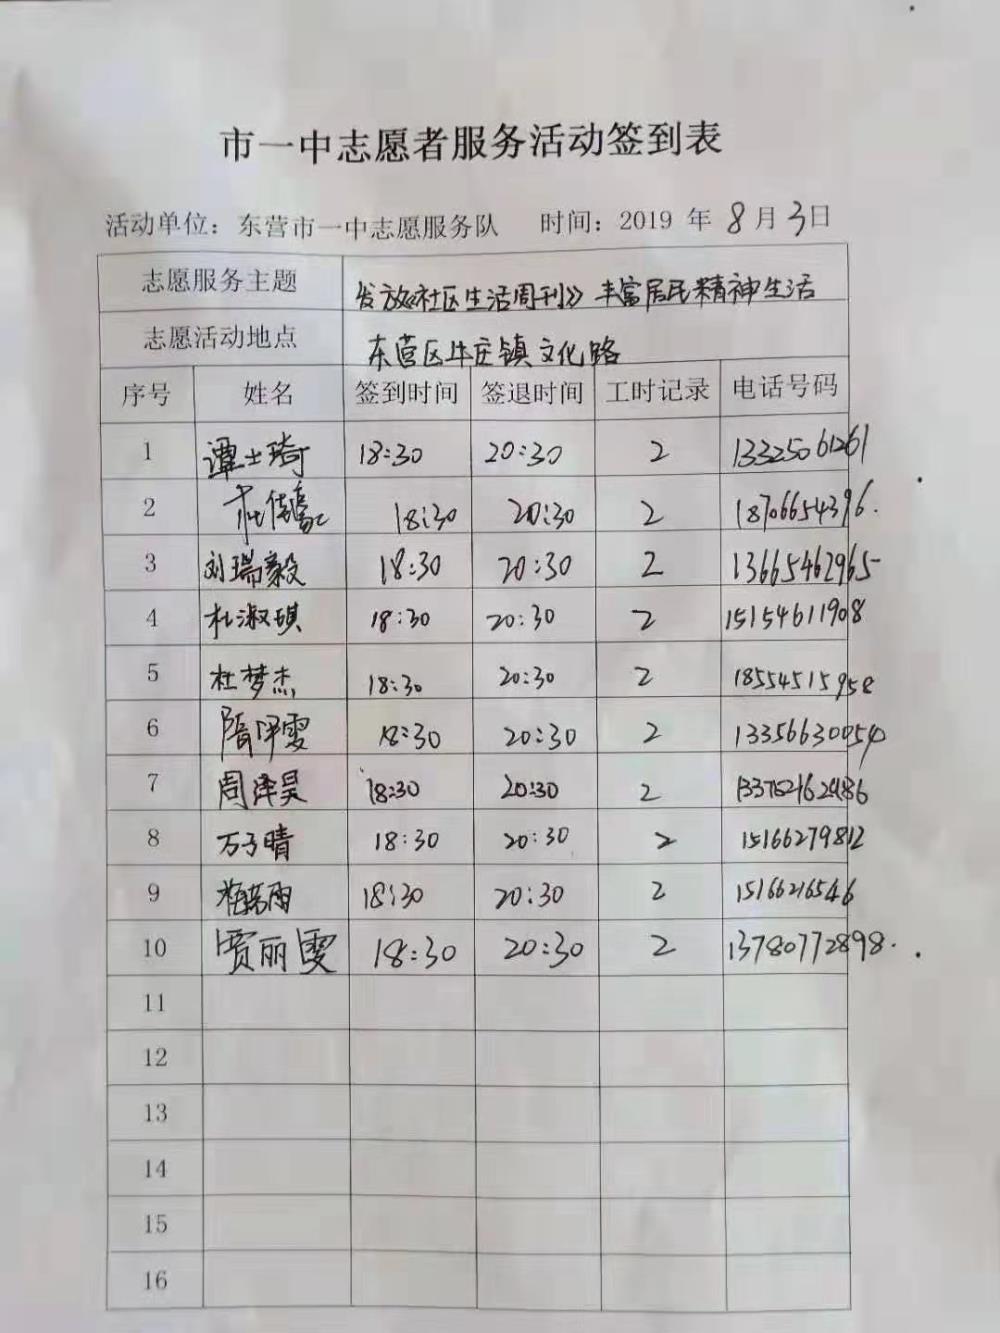 市一中志愿者服务活动签到表
活动单位：东营市一中志愿服务队 时间：2019 年 8 月 3 日
志愿服务主题 发放《社区生活周刊》丰富居民精神生活
志愿活动地点 东营区牛庄镇文化路
序号 姓名 签到时间 签退时间 工时记录 电话号码
1 谭士琦 18:30 20:30 2 13325061261
2 18:30 20:30 2 18706654396.
3 刘瑞毅 18:30 20:30 2 13665462965
4 杜淑琪 18:30 20:30 2 15154611908
5 杜梦杰 18:30 20:30 2 18554515958
6 隋伊雯 18:30 20:30 2 13356630054
7 周泽昊 18:30 20:30 2
8 万子晴 18:30 20:30 2 15166279812
9 18:30 20:30 2 15166216546
10 贾丽雯 18:30 20:30 2 13780772898.
11
12
13
14
15
16